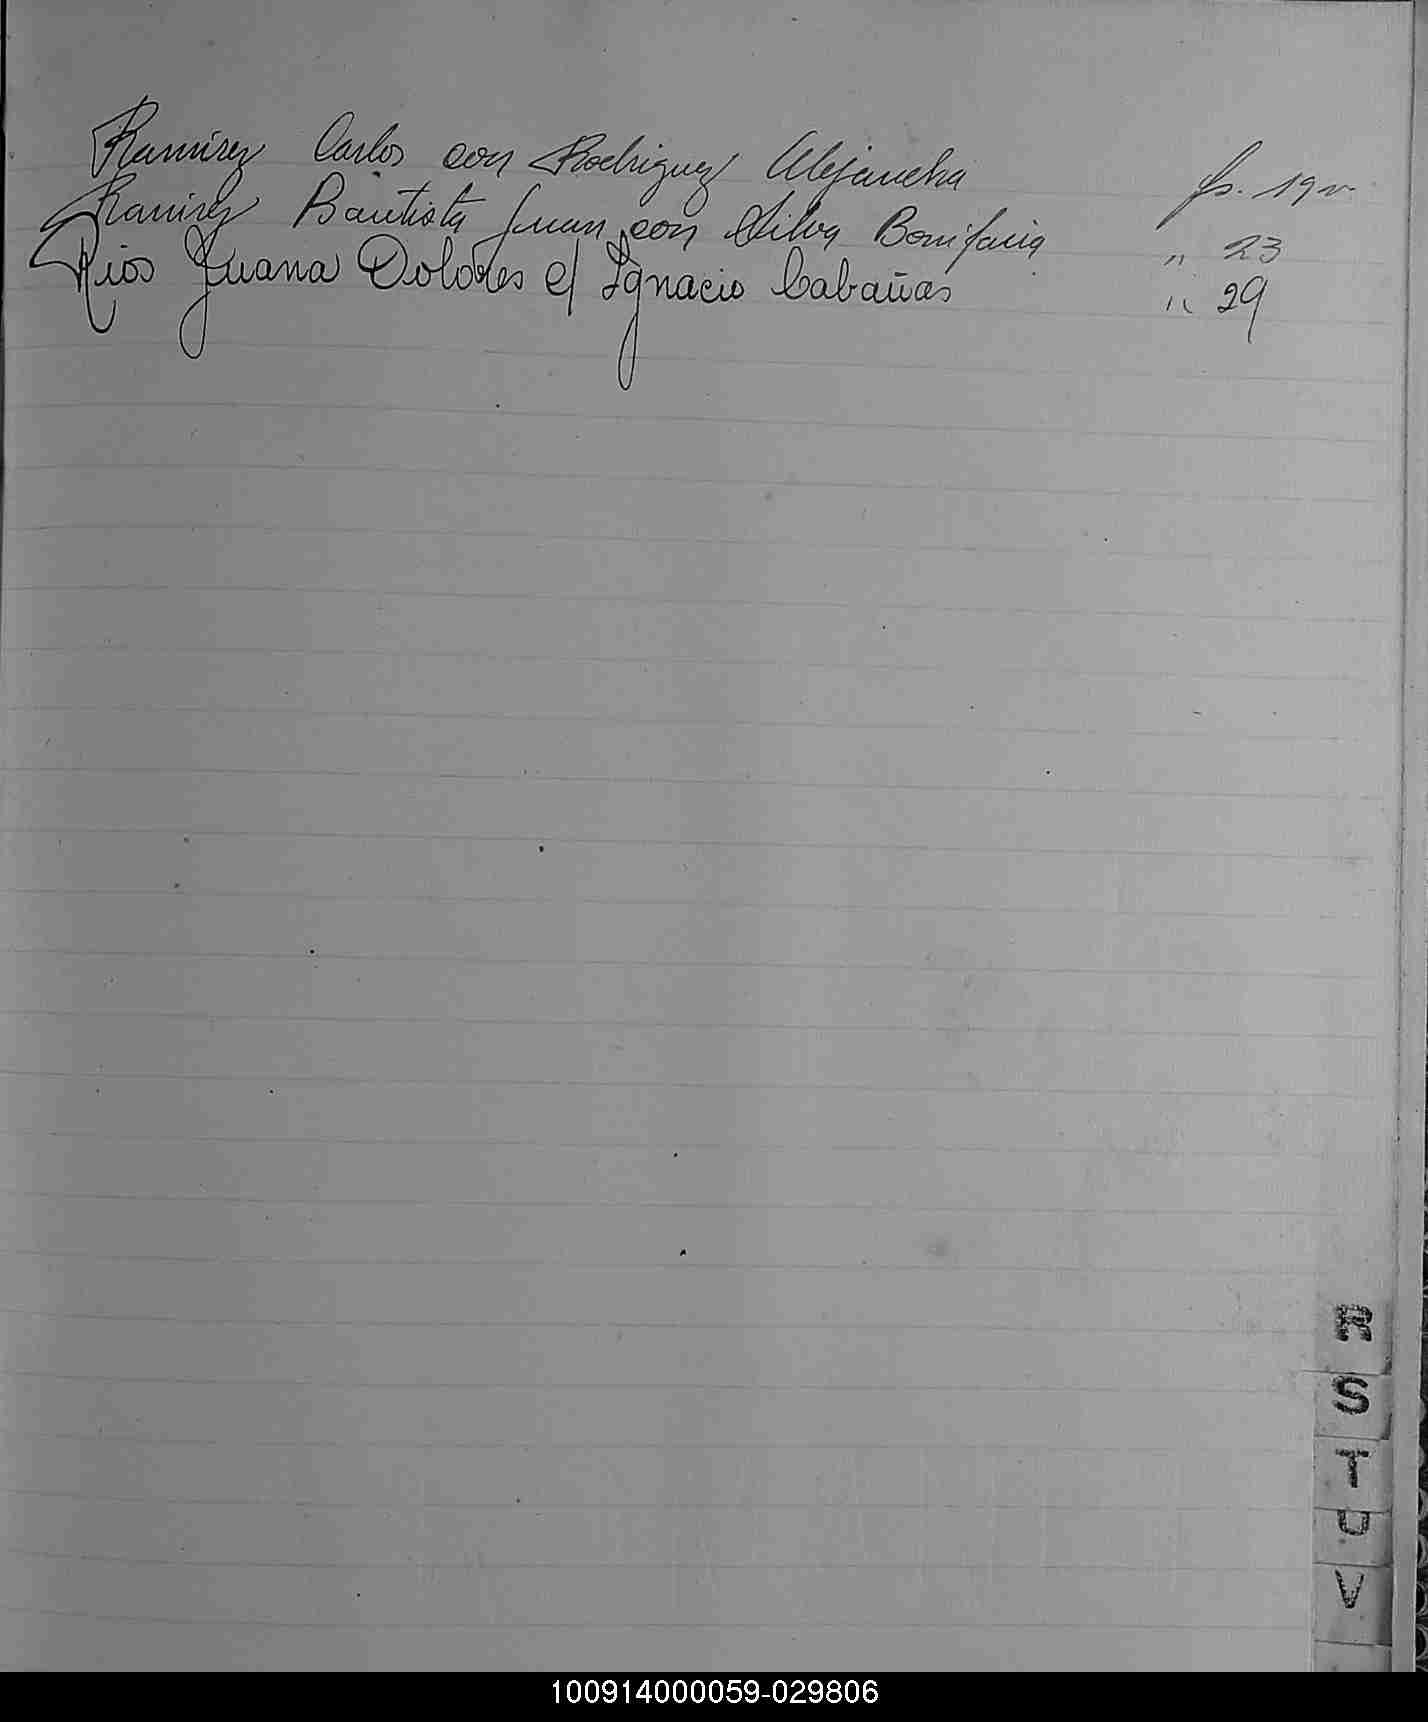 Ramirez Carlos con Rodriguez Alejandra fs. 19 v.
Ramirez Bautista Juan con Silva Bonifacia " 23
Rios Juana Dolores c/ Ignacio Cabañas " 29
R
S
T
U
V
100914000059-029806